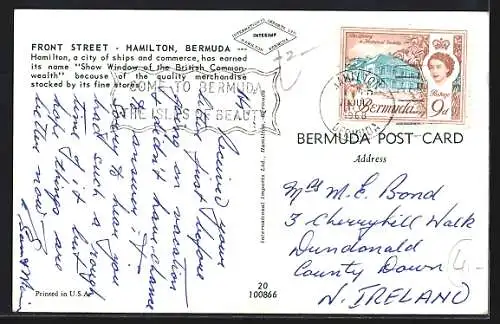 FRONT STREET - HAMILTON, BERMUDA ...
Hamilton, a city of ships and commerce, has earned
its name "Show Window of the British Common-
wealth" because of the quality merchandise
stocked by its fine stores.
INTERNATIONAL IMPORTS LTD.
INTERIMP
HAMILTON BERMUDA
COME TO BERMUDA
THE ISLES OF BEAUTY
HAMILTON
JUN
1968
BERMUDA
The Library
& Historical Society
Bermuda
Postage
9d
BERMUDA POST CARD
Address
Mrs M. E. Bond
3 Cherryhill Walk
Dundonald
County Down
N. IRELAND
Received your
letter just before
going on vacation
& didn't have chance
to answer it.
Sorry to hear you
had such a rough
time & just
hope things are
better now.
International Imports Ltd., Hamilton, Bermuda
Printed in U.S.A.
20
100866
2-
4-